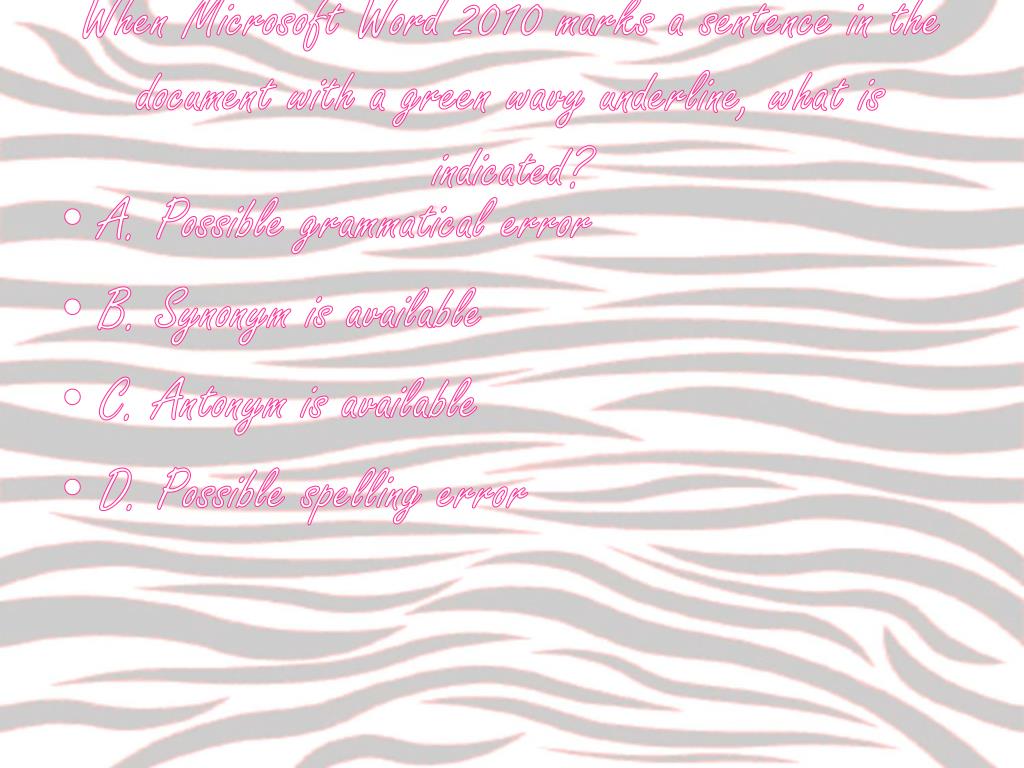 When Microsoft Word 2010 marks a sentence in the
document with a green wavy underline, what is
indicated?
• A. Possible grammatical error
• B. Synonym is available
• C. Antonym is available
• D. Possible spelling error